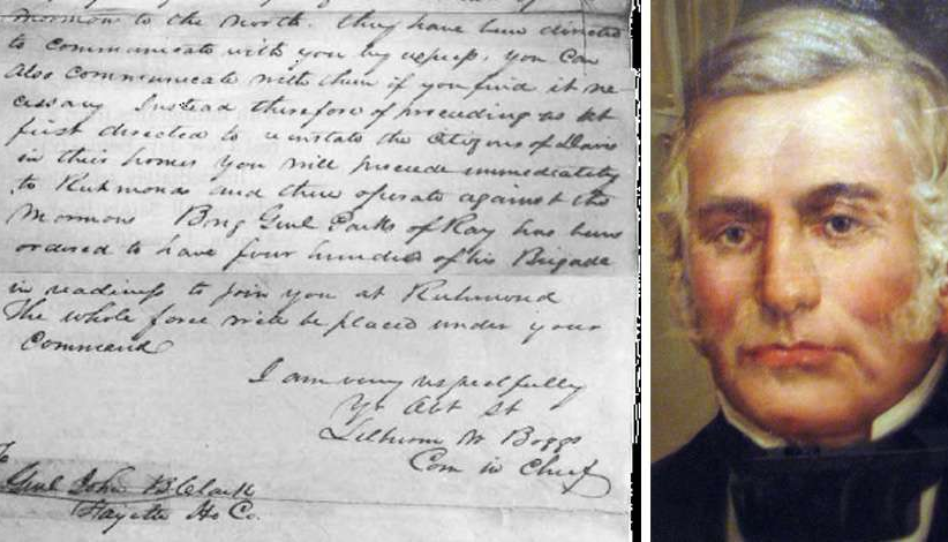 Mormon to the north. They have been directed
to communicate with you by express. You can
also communicate with them if you find it ne-
cessary Instead therefore of proceeding as at
first directed to reinstate the Citizens of Davis
in their homes you will procede immediately
to Richmond and there operate against the
Mormons Brig Genl Parks of Ray has been
ordered to have four hundred of his Brigade
in readiness to join you at Richmond
The whole force will be placed under your
Command
I am very respectfully
Yr obt St
Lilburn W Boggs
Com in Chief
To
Genl John B Clark
Fayette Ho Co.